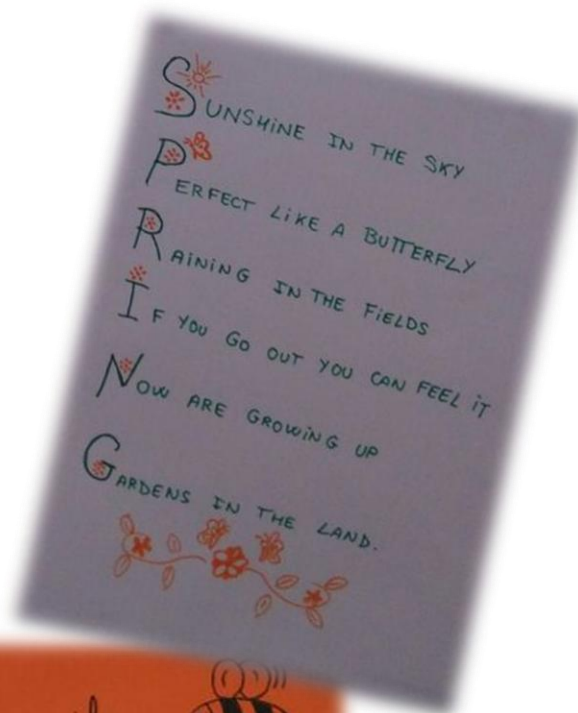 SUNSHINE IN THE SKY
PERFECT LIKE A BUTTERFLY
RAINING IN THE FIELDS
IF YOU GO OUT YOU CAN FEEL IT
NOW ARE GROWING UP
GARDENS IN THE LAND.